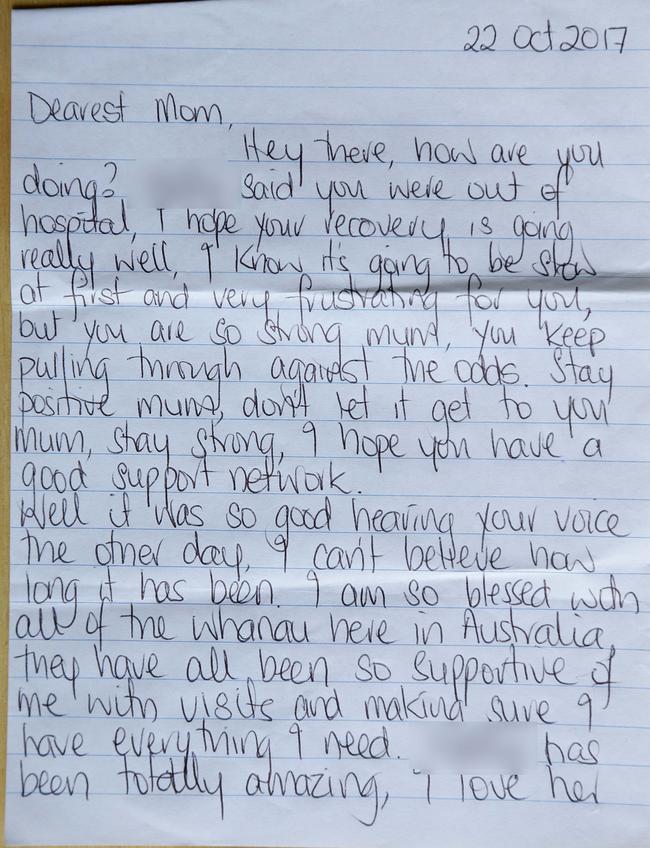 22 Oct 2017
Dearest Mom,
Hey there, how are you
doing? said you were out of
hospital, I hope your recovery is going
really well, I know it's going to be slow
at first and very frustrating for you,
but you are so strong mum, you keep
pulling through against the odds. Stay
positive mum, don't let it get to you
mum, stay strong, I hope you have a
good support network.
Well it was so good hearing your voice
the other day, I can't believe how
long it has been. I am so blessed with
all of the whanau here in Australia,
they have all been so supportive of
me with visits and making sure I
have everything I need. has
been totally amazing, I love her